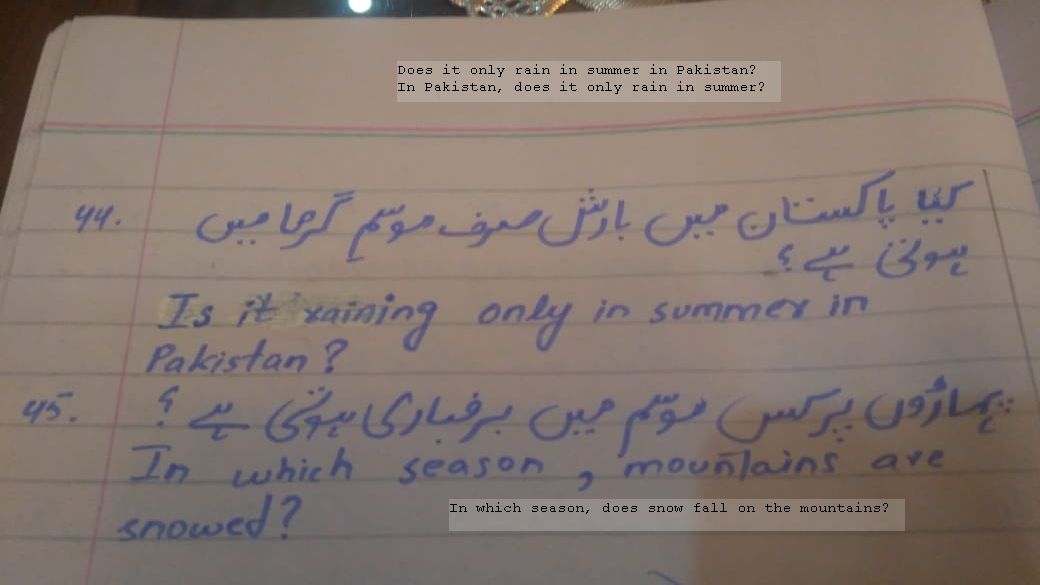 Does it only rain in summer in Pakistan?
In Pakistan, does it only rain in summer?
44. کیا پاکستان میں بارش صرف موسم گرما میں
ہوتی ہے؟
Is it raining only in summer in
Pakistan?
45. پہاڑوں پر کس موسم میں برفباری ہوتی ہے؟
In which season, mountains are
snowed?
In which season, does snow fall on the mountains?